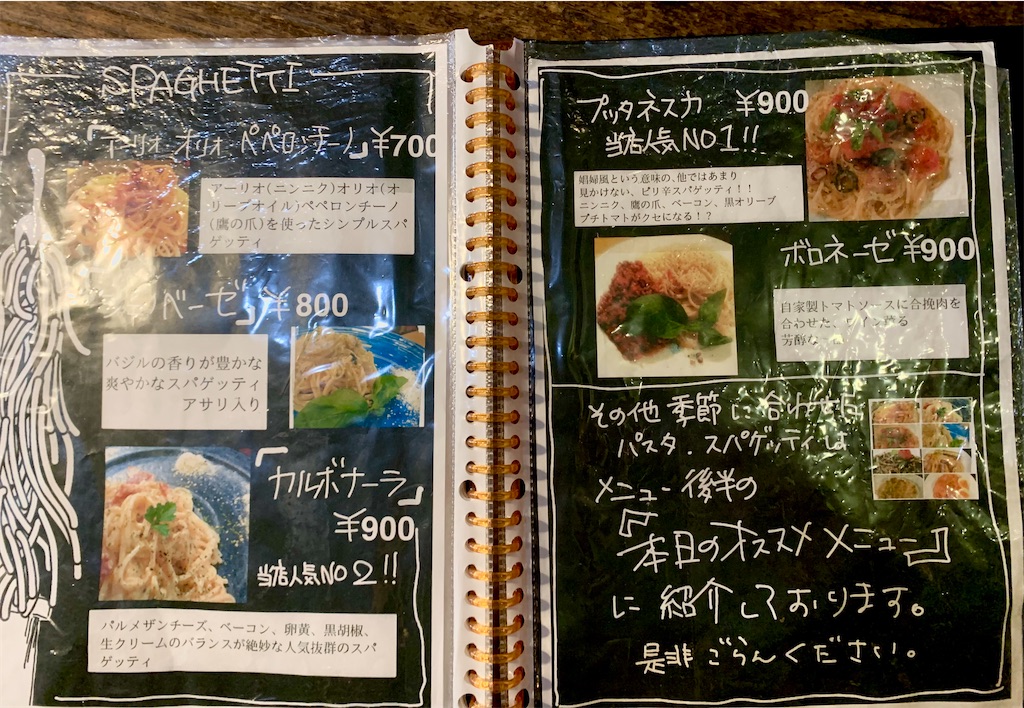 SPAGHETTI
「アーリオ オリオ ペペロンチーノ」¥700
アーリオ(ニンニク)オリオ(オ
リーブオイル)ペペロンチーノ
(鷹の爪)を使ったシンプルスパ
ゲッティ
ベーゼ」¥800
バジルの香りが豊かな
爽やかなスパゲッティ
アサリ入り
「カルボナーラ」
¥900
当店人気NO2!!
パルメザンチーズ、ベーコン、卵黄、黒胡椒、
生クリームのバランスが絶妙な人気抜群のスパ
ゲッティ
プッタネスカ ¥900
当店人気NO1!!
娼婦風という意味の、他ではあまり
見かけない、ピリ辛スパゲッティ!!
ニンニク、鷹の爪、ベーコン、黒オリーブ
プチトマトがクセになる!?
ボロネーゼ ¥900
自家製トマトソースに合挽肉を
合わせた、ワイン誇る
芳醇な
その他 季節に合わせた
パスタ.スパゲッティは
メニュー後半の
『本日のオススメメニュー』
に紹介しております。
是非ごらんください。